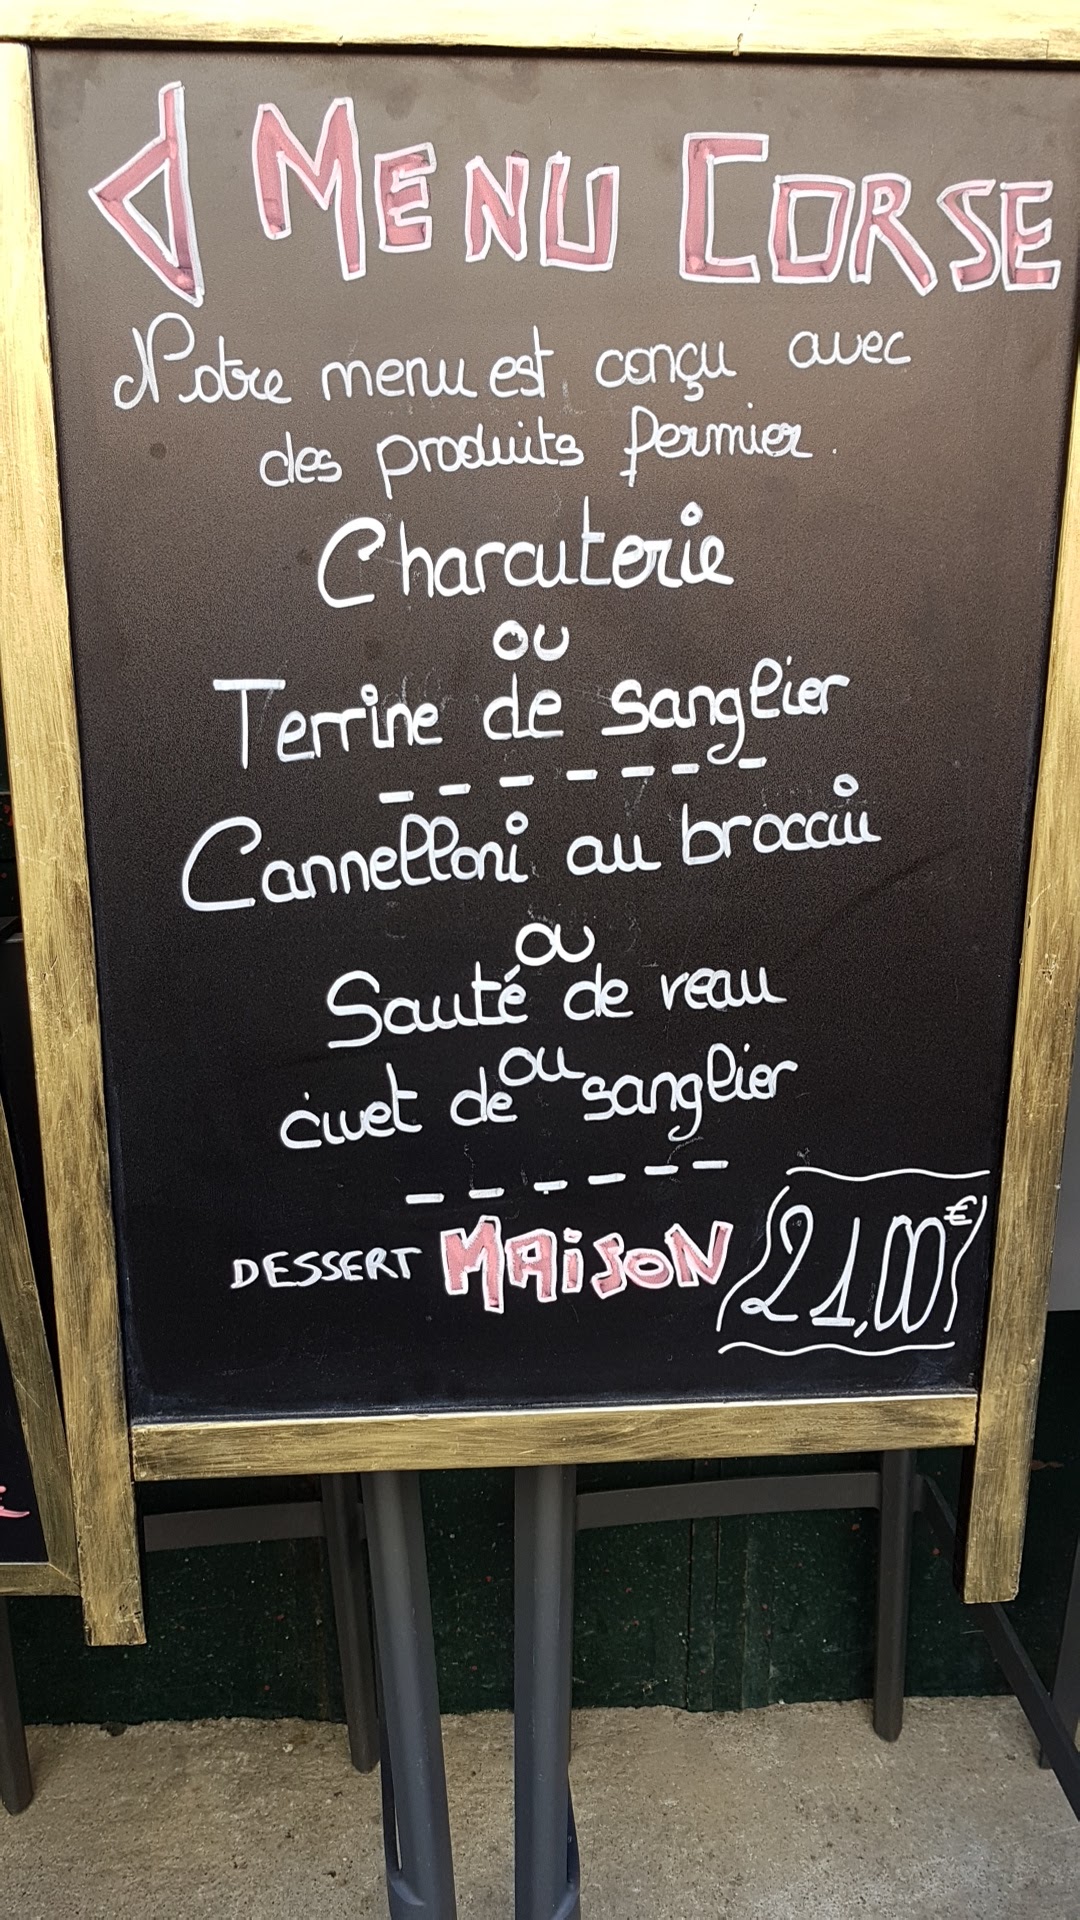 MENU CORSE
Notre menu est conçu avec
des produits fermier.
Charcuterie
ou
Terrine de sanglier
Cannelloni au brocciu
ou
Sauté de veau
ou
civet de sanglier
DESSERT MAISON 21,00€